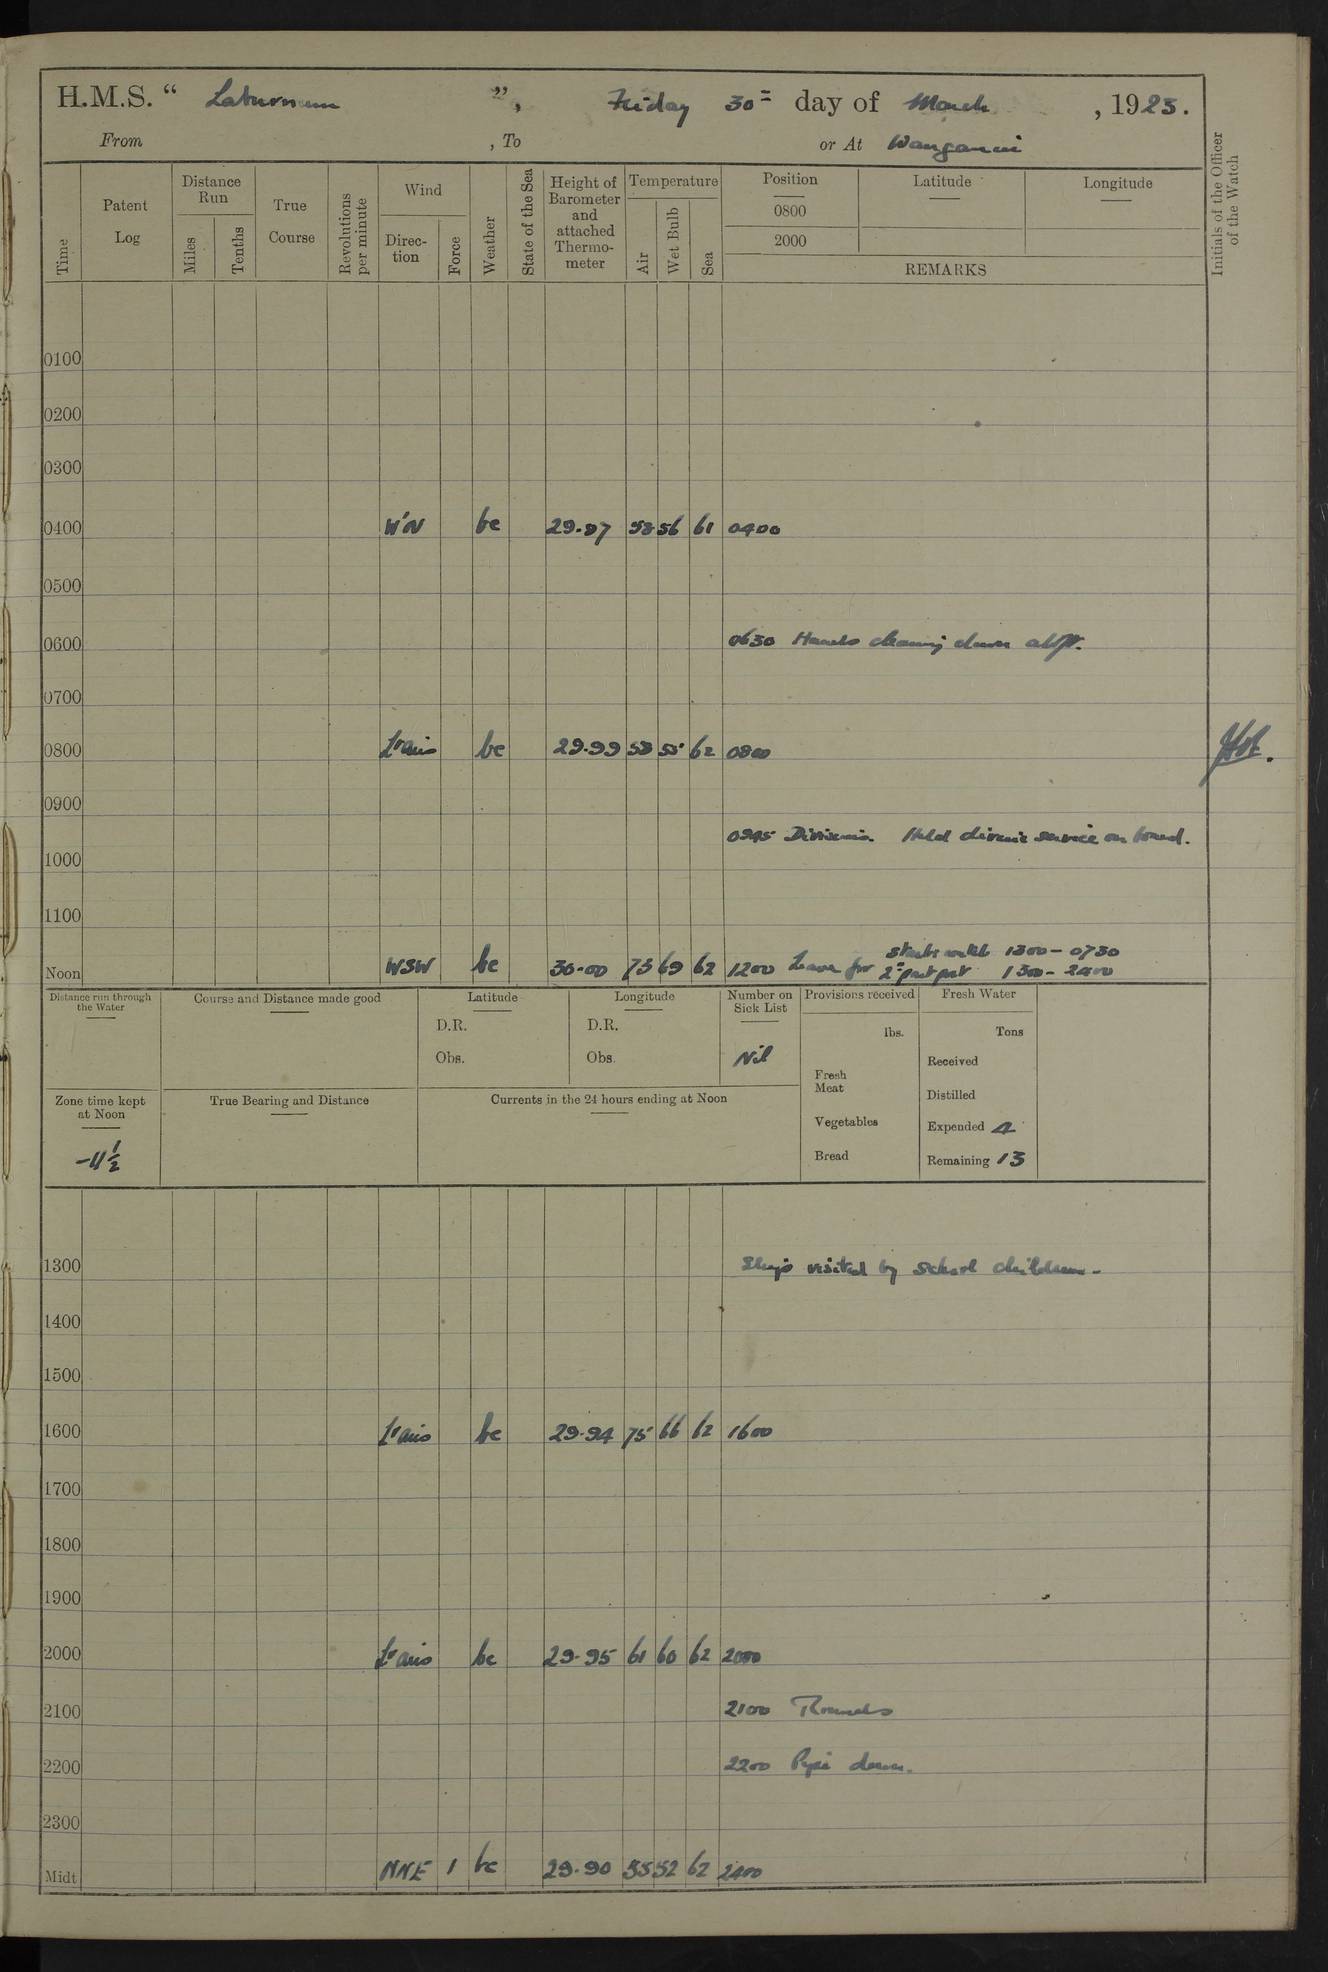 H.M.S. “ Laburnum ”, Friday 30= day of March , 1923.
From , To or At Wanganui
Time
Patent Log
Distance Run
Miles
Tenths
True Course
Revolutions per minute
Wind
Direc-tion
Force
Weather
State of the Sea
Height of Barometer and attached Thermo-meter
Temperature
Air
Wet Bulb
Sea
Position
0800
2000
Latitude
Longitude
REMARKS
Initials of the Officer of the Watch
0100
0200
0300
0400 W'N bc 29.97 58 56 61 0400
0500
0600 0630 Hands cleaning down
0700
0800 Lt airs bc 29.99 58 55 62 0800
0900
0945 Divisions. Held divine service on board.
1000
1100
1300 - 0730
Noon WSW bc 30.00 73 69 62 1200 Leave for 2= part 1300 - 2400
Distance run through the Water
Course and Distance made good
Latitude
D.R.
Obs.
Longitude
D.R.
Obs.
Number on Sick List
Nil
Provisions received
lbs.
Fresh Meat
Vegetables
Bread
Fresh Water
Tons
Received
Distilled
Expended 4
Remaining 13
Zone time kept at Noon
-11½
True Bearing and Distance
Currents in the 24 hours ending at Noon
1300 Ship visited by school children.
1400
1500
1600 Lt airs bc 29.94 75 66 62 1600
1700
1800
1900
2000 Lt airs bc 29.95 61 60 62 2000
2100 2100 Rounds
2200 2200 Pipe down.
2300
Midt NNE 1 bc 29.90 55 52 62 2400